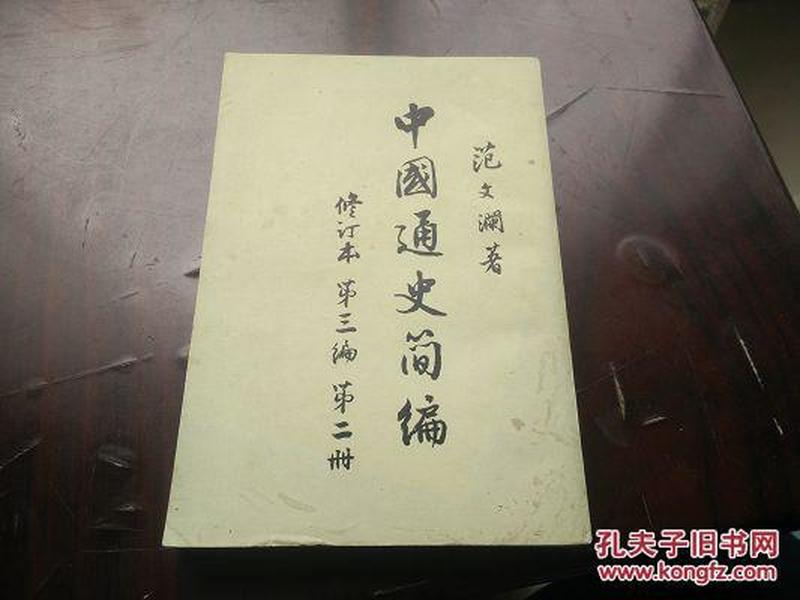 范文澜著
中國通史简编
修订本 第三编 第二册
孔夫子旧书网
www.kongfz.com